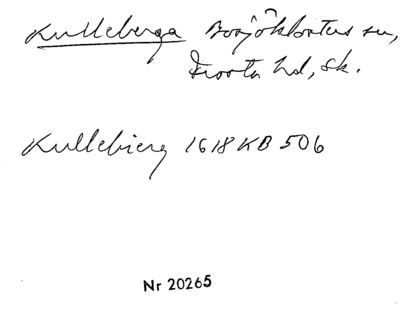 Kulleberga Bosjöklosters sn,
Frosta hd, Sk.
Kullebierg 1618 KB 506
Nr 20265